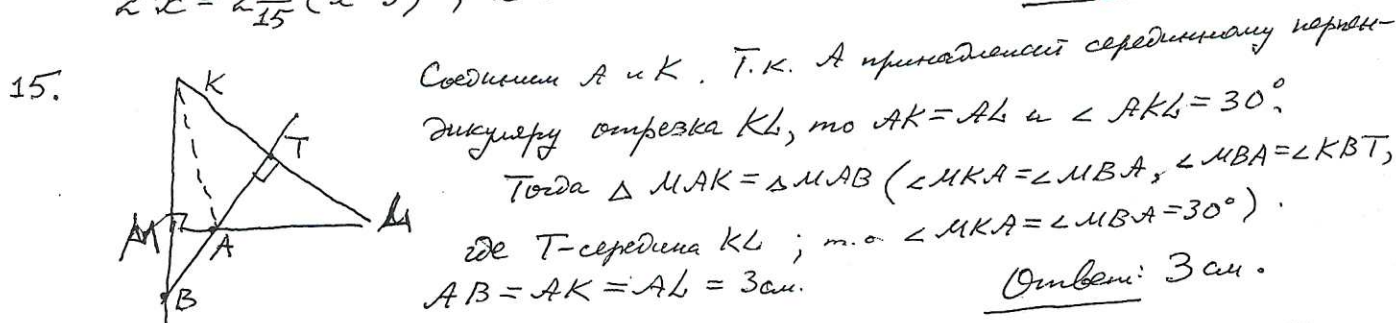 2x = 2 1/15 (x
15.
K
T
M
A
L
B
Соединим A и K. Т.к. A принадлежит серединному перпен-
дикуляру отрезка KL, то AK = AL и ∠ AKL = 30°.
Тогда △ MAK = △ MAB (∠MKA = ∠MBA, ∠MBA = ∠KBT,
где T-середина KL ; т.о ∠MKA = ∠MBA = 30°).
AB = AK = AL = 3 см.
Ответ: 3 см.